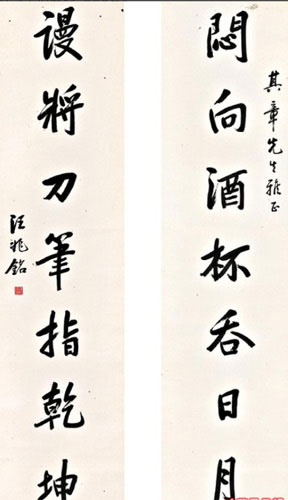 其章先生雅正
闷向酒杯吞日月
谩将刀筆指乾坤
汪兆铭